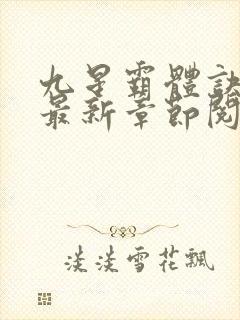 九星霸體訣
最新章節閱
淡淡雪花飄